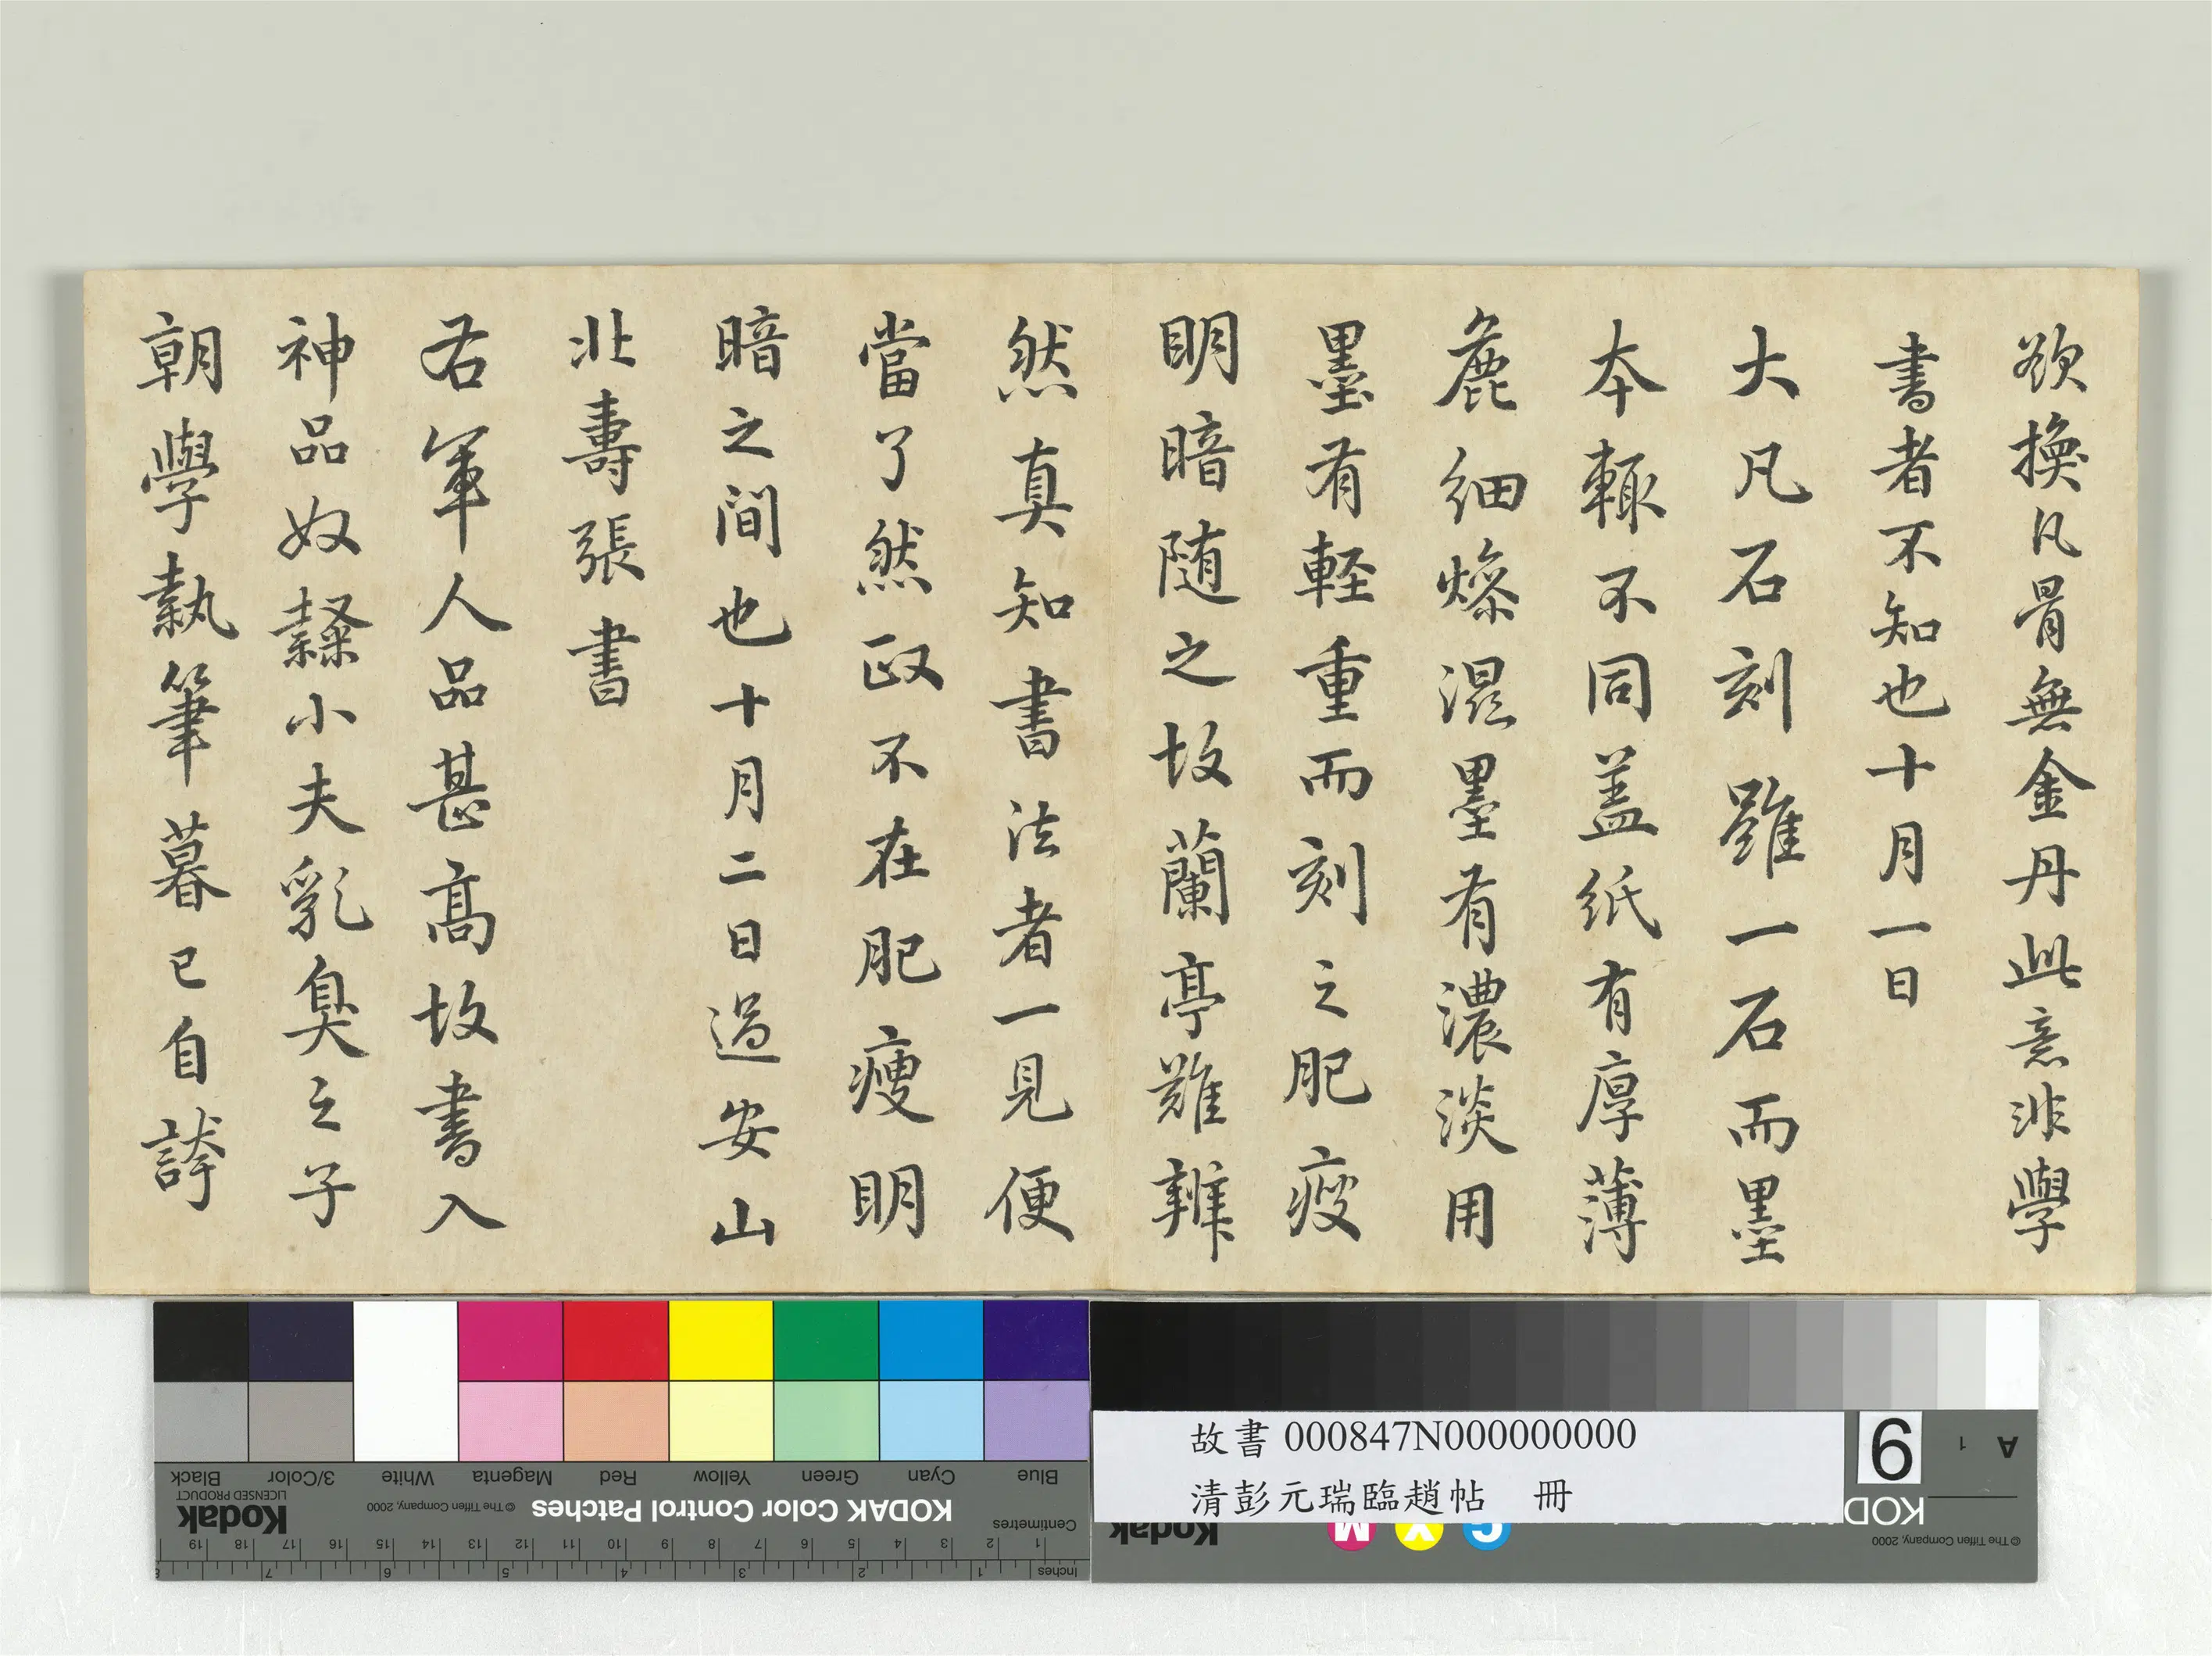 欲換凡骨無金丹此意非學
書者不知也十月一日
大凡石刻雖一石而墨
本輙不同盖紙有厚薄
麁細燥濕墨有濃淡用
墨有輕重而刻之肥瘦
明暗随之故蘭亭難辨
然真知書法者一見便
當了然政不在肥瘦明
暗之間也十月二日過安山
北壽張書
右軍人品甚高故書入
神品奴隸小夫乳臭之子
朝學執筆暮已自誇
Blue Cyan Green Yellow Red Magenta White 3/Color Black
KODAK Color Control Patches
© The Tiffen Company, 2000
Kodak
LICENSED PRODUCT
Centimetres
1 2 3 4 5 6 7 8 9 10 11 12 13 14 15 16 17 18 19
Inches
1 2 3 4 5 6 7 8
故書 000847N000000000
清彭元瑞臨趙帖 冊
9
A 1
KOD
© The Tiffen Company, 2000
Kodak
C Y M